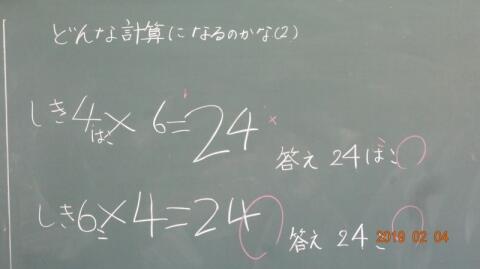 どんな計算になるのかな(2)
しき4×6=24
ばこ
答え 24ばこ
しき6×4=24
こ
答え 24こ
2019 02 04